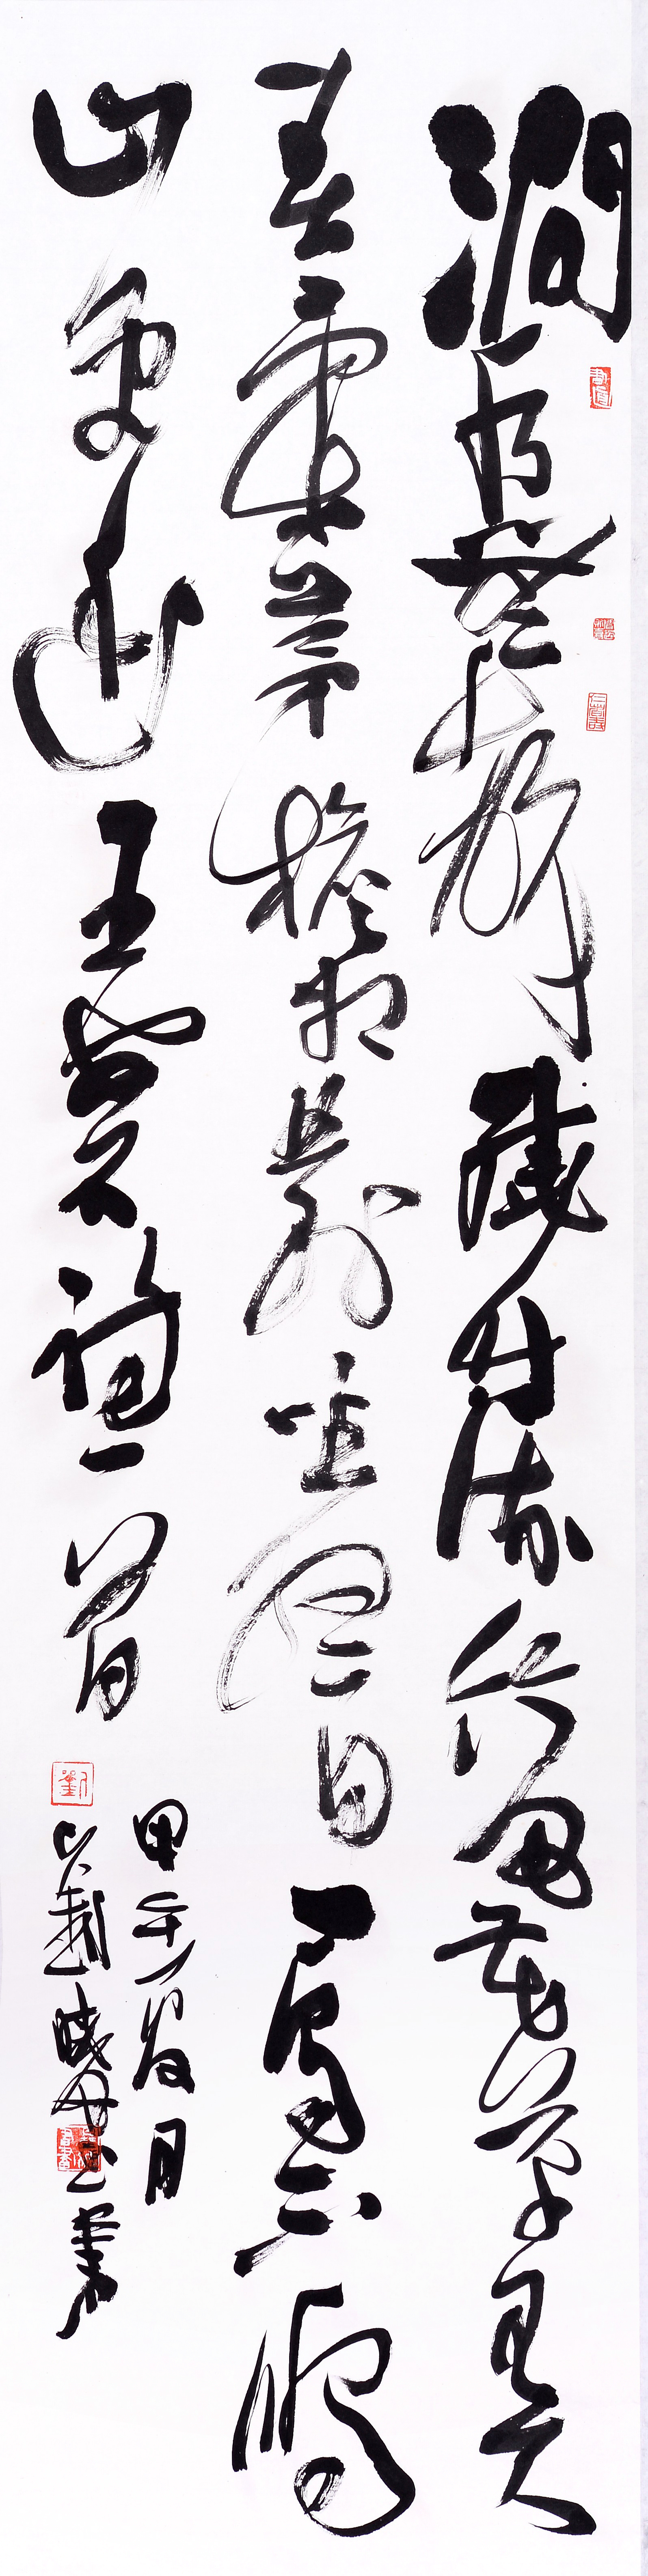 澗水無聲繞竹流竹西花草弄
春柔茅檐相對坐終日一鳥不鳴
山更幽王安石詩一首
甲午月
書